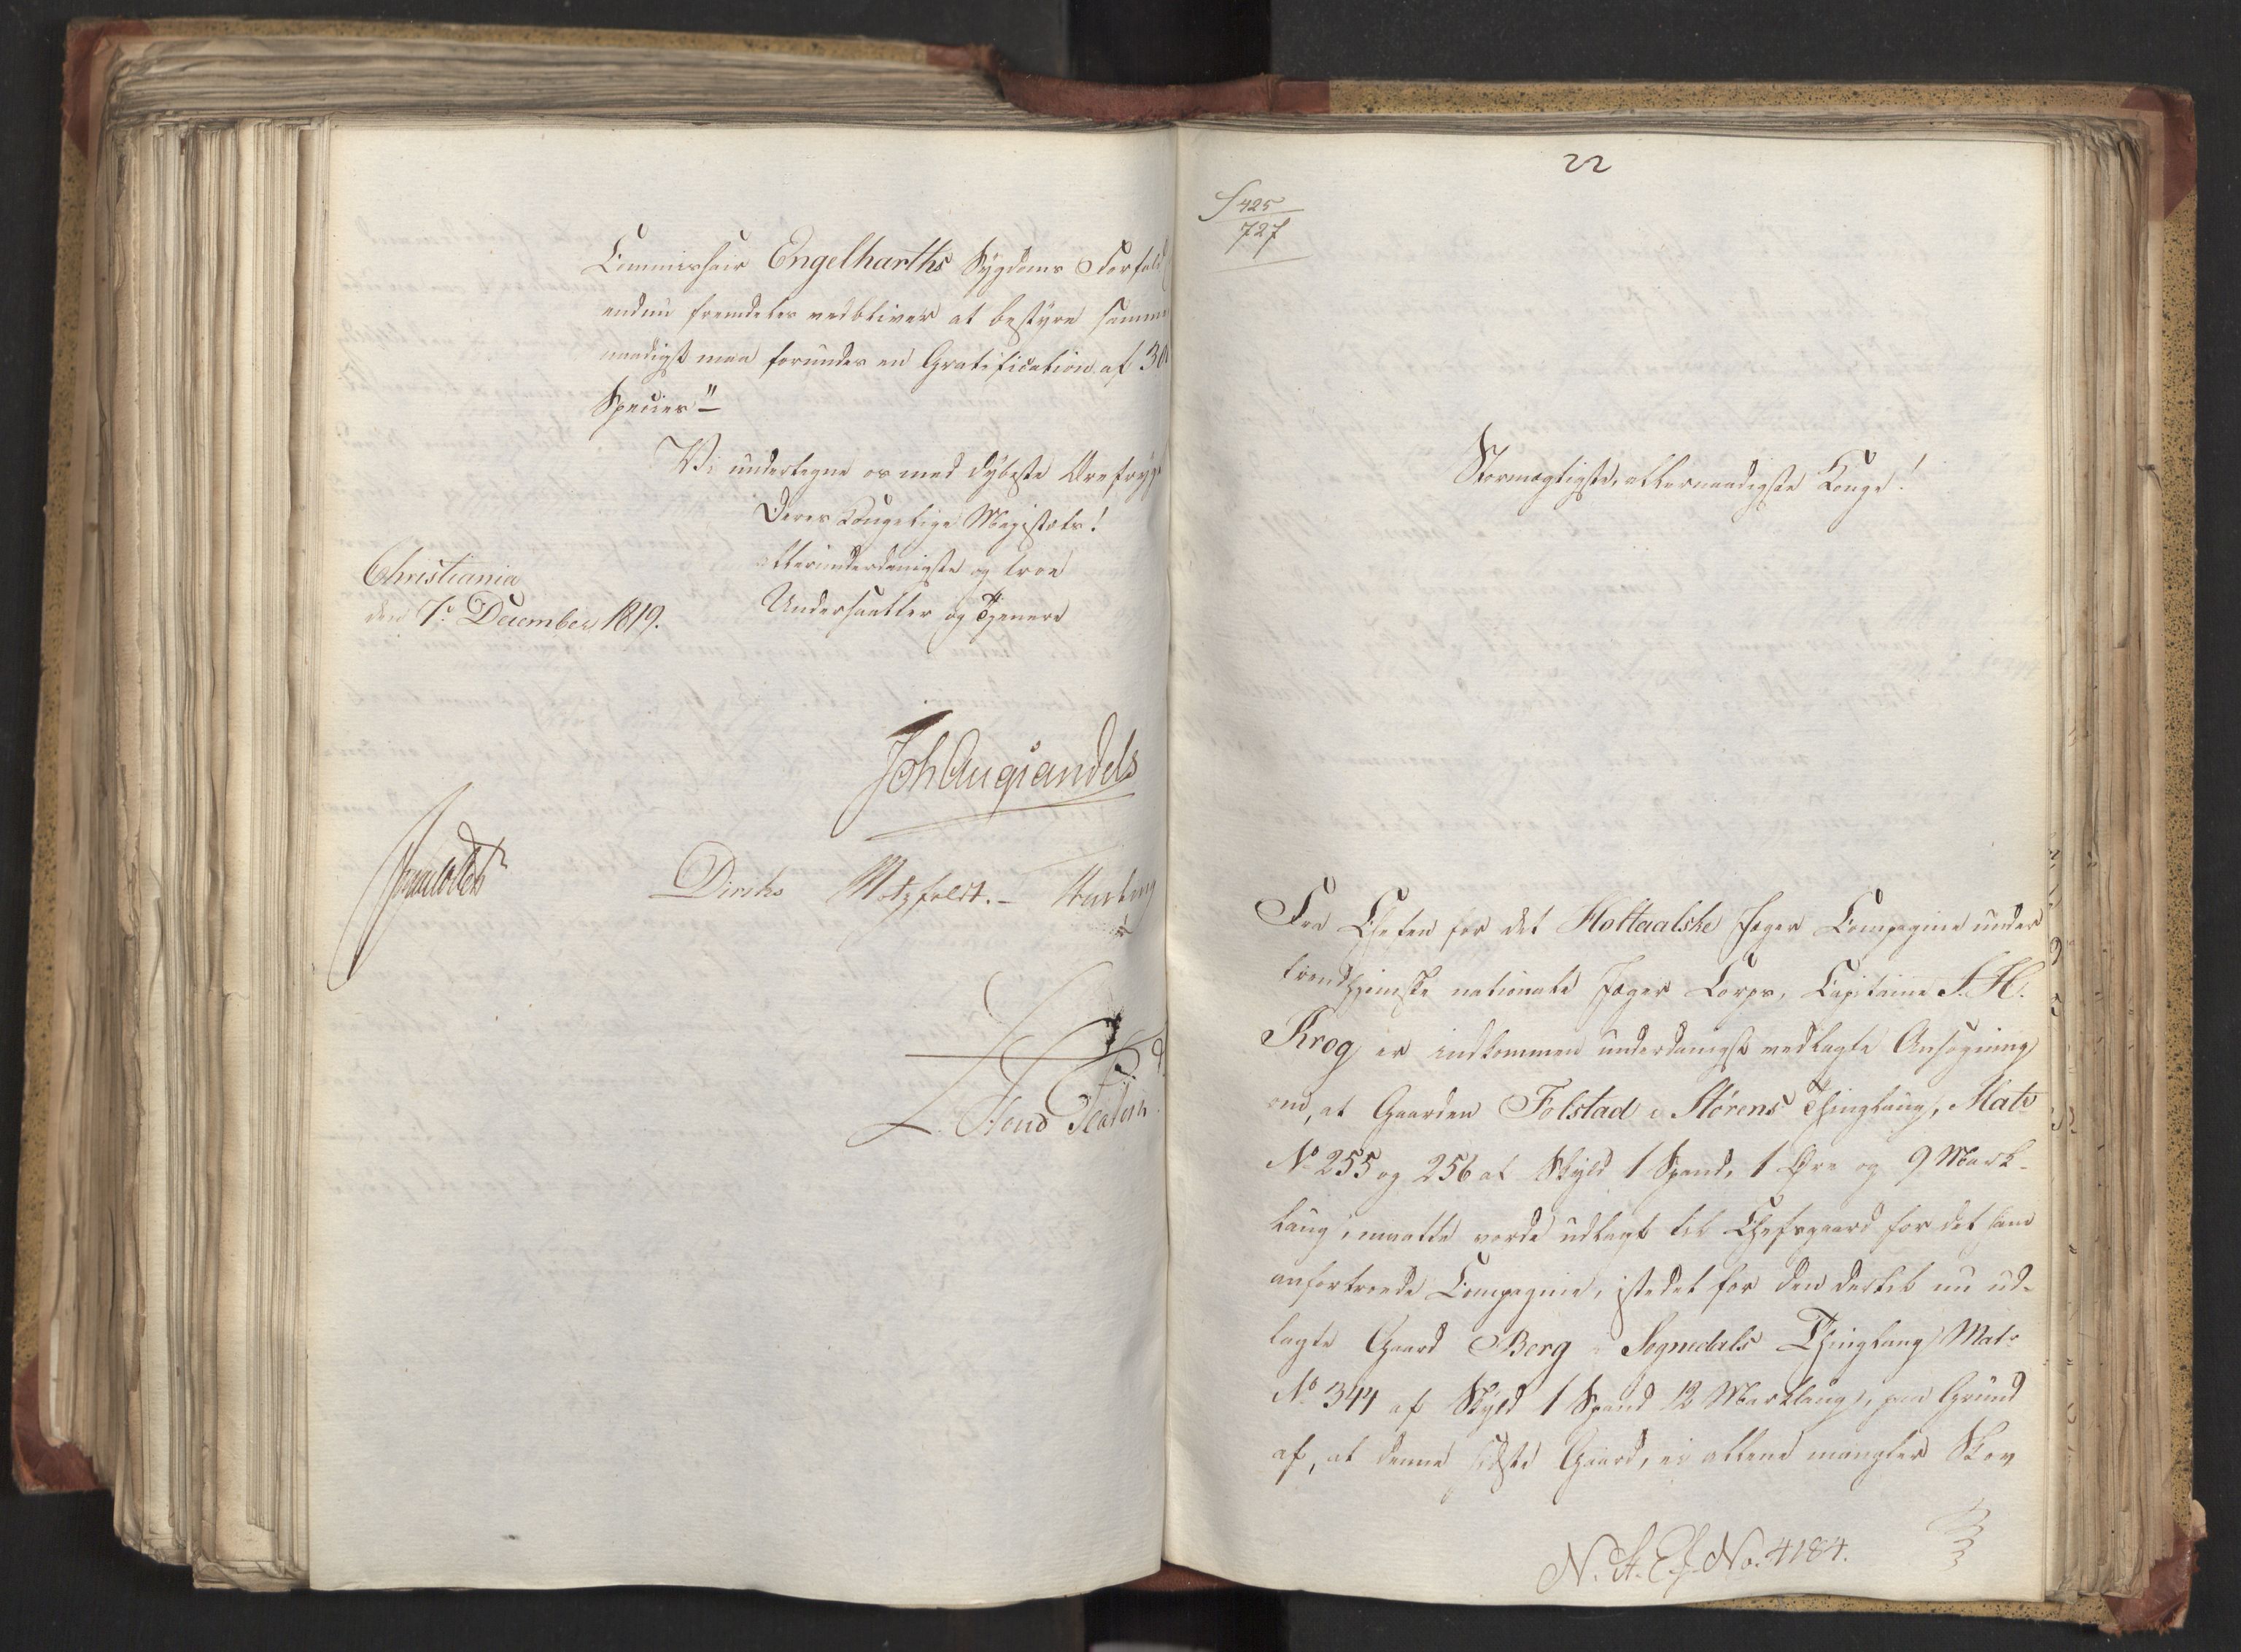 Commissair Engelharths Sygdoms Forfald
endnu fremdeles vedbliver at bestyre samme
naadigst maa forundes en Gratification af 30
Species"
Vi undertegne os med dybeste Ærefrygt
Deres Kongelige Majestæts!
allerunderdanigste og troe
Undersaatter og Tjenere
Christiania
den 7. December 1819.
Joh Aug Sandels
Diriks Motzfeldt.
22
S 425
727
Stormægtigste, allernaadigste Konge!
Fra Chefen for det Holtaalske Jæger Compagnie under
trondhjemske nationale Jæger Corps, Capitaine F. H.
Krog er indkommen underdanigst vedlagte Ansøgning
om, at Gaarden Folstad i Størens Thinglaug, Matr
No 255 og 256 af Skyld 1 Spand, 1 Øre og 9 Mark-
laug, maatte vorde udlagt til Chefsgaard for det ham
anfortroede Compagnie, istedet for den dertil nu ud-
lagte Gaard Berg i Sognedals Thinglaug Matr
No 344 af Skyld 1 Spand 12 Marklaug, paa Grund
af, at denne sidste Gaard, ei allene mangler Skov
N. St. Ef. No. 4184.